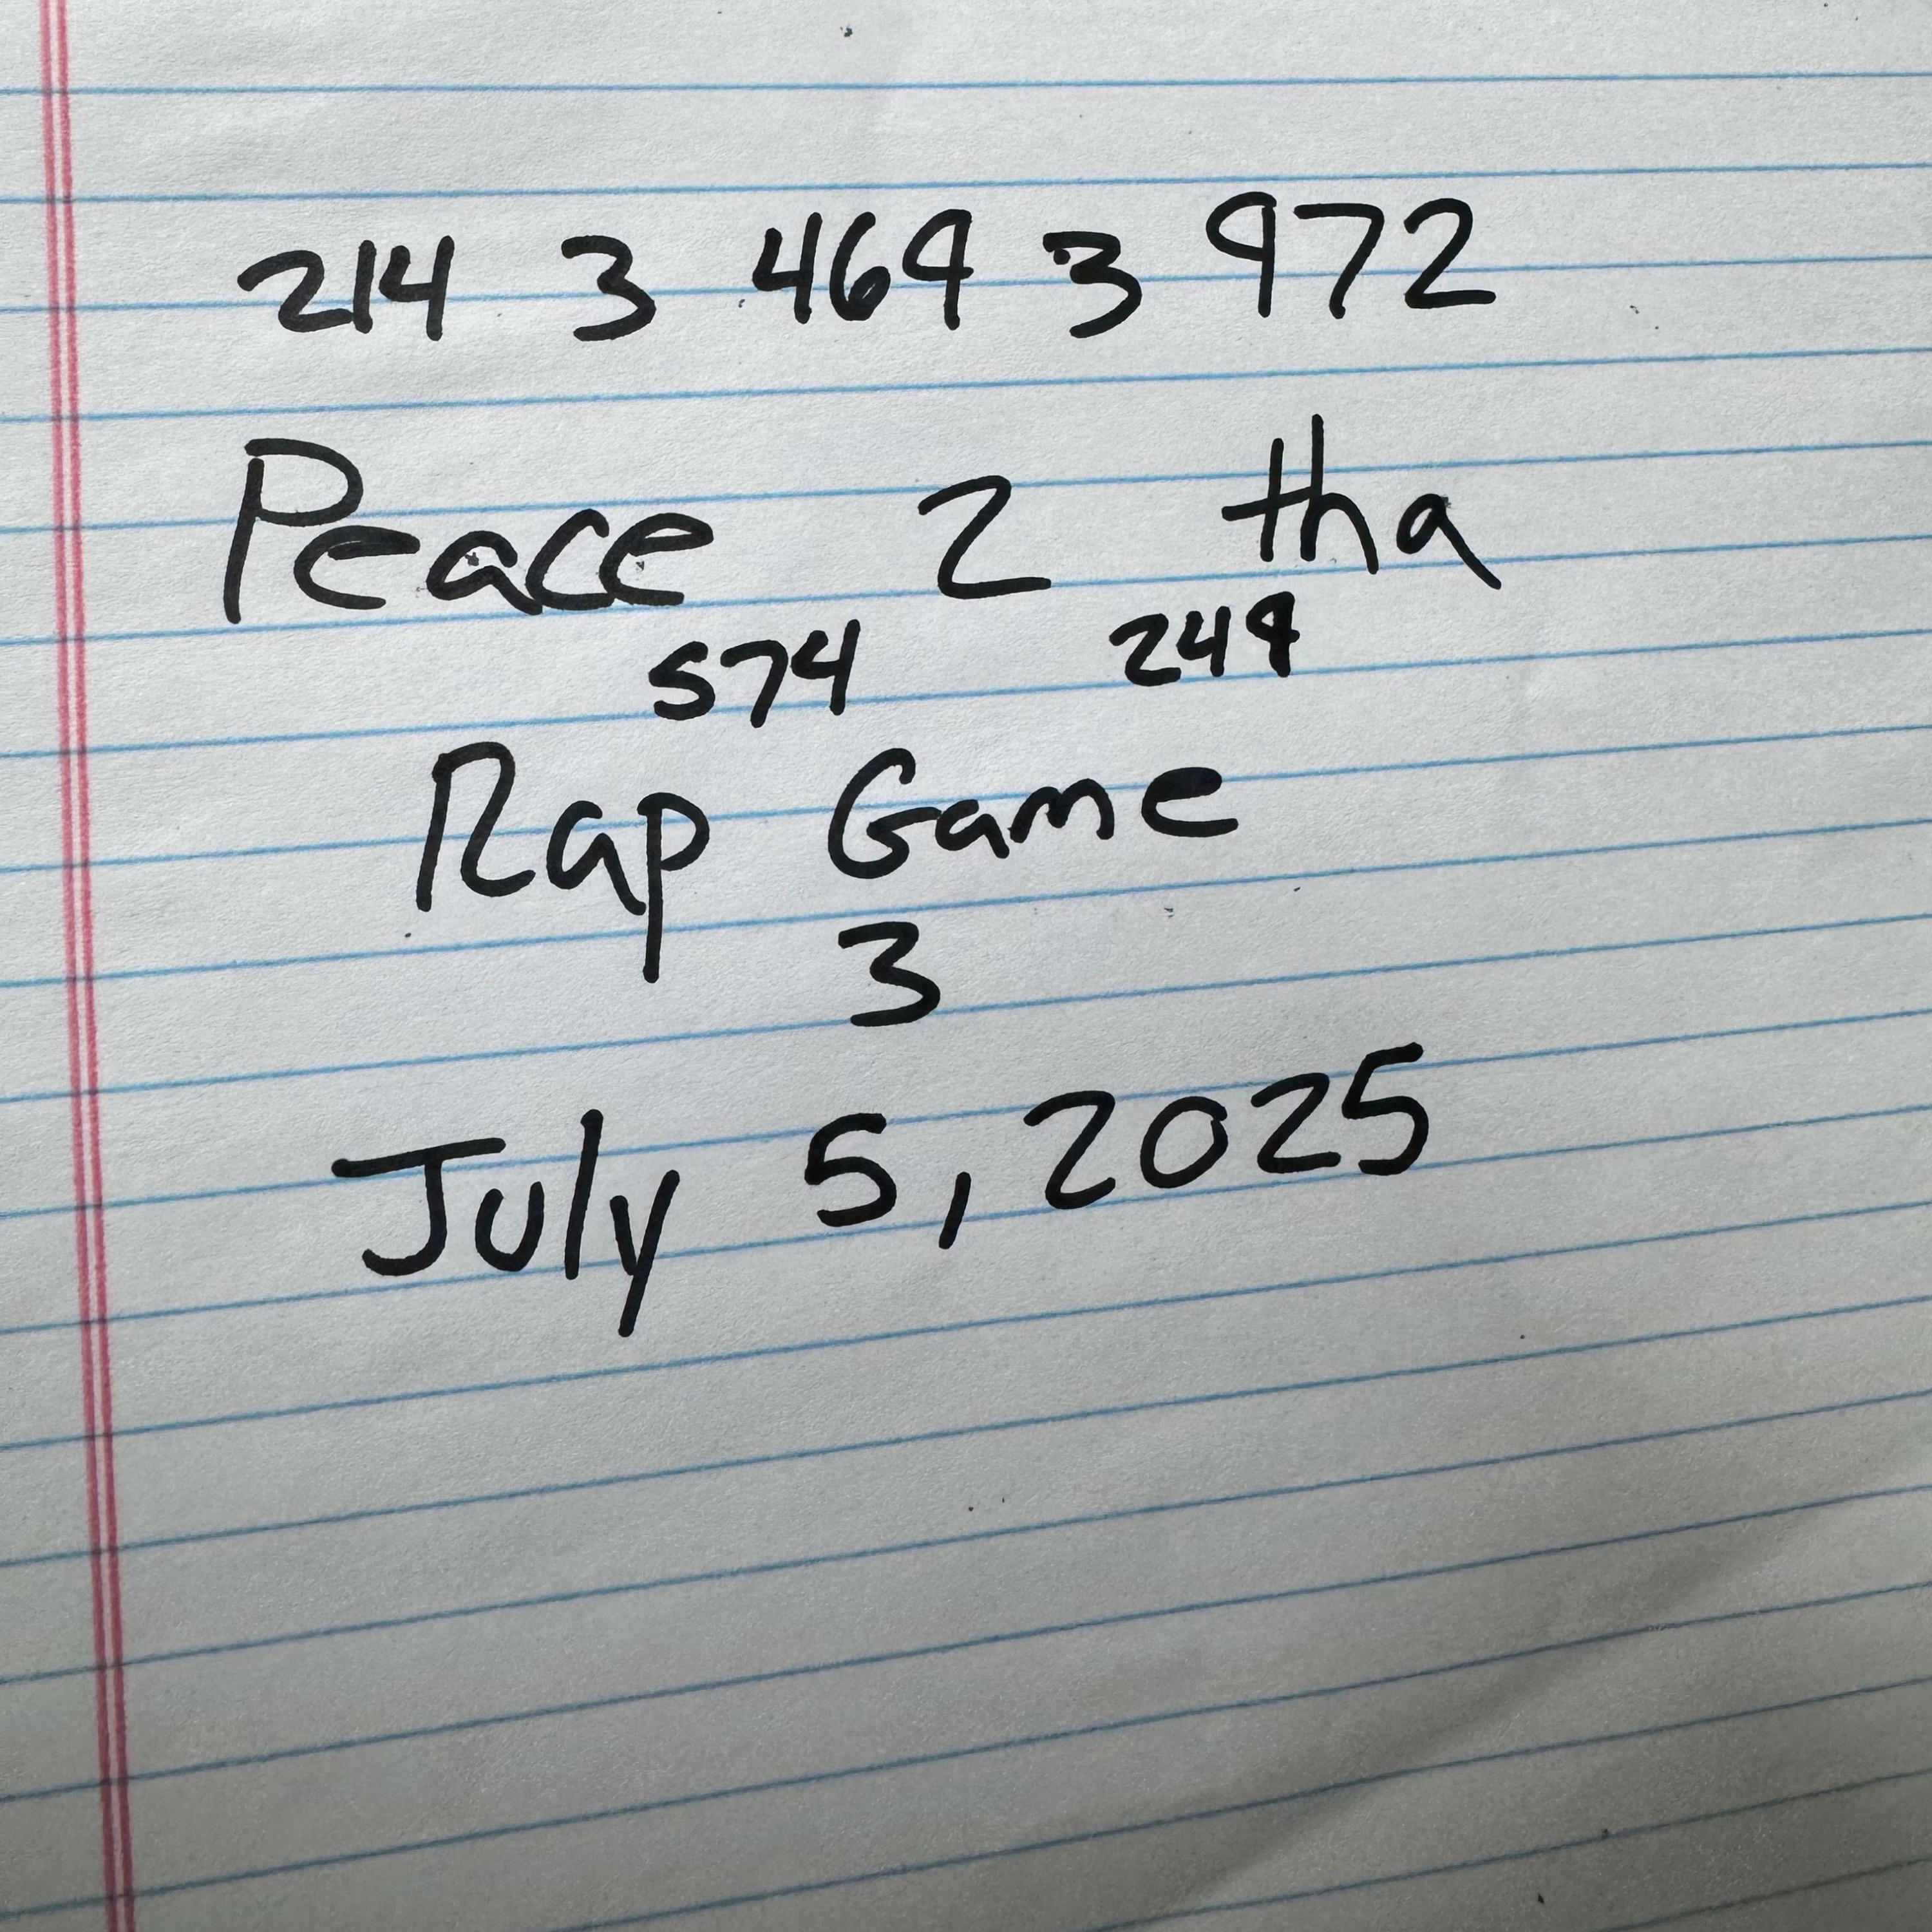 214 3 469 3 972
Peace 2 tha
574 249
Rap Game
3
July 5, 2025